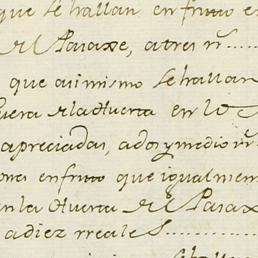 que se hallan en fruto e
de el Paraxe, a tres rs
que asimismo se hallan
uera de la Huerta en lo
apreciadas, a dos y medio rs
ones en fruto que igualmen
en la Huerta de el Parax
a diez rreales